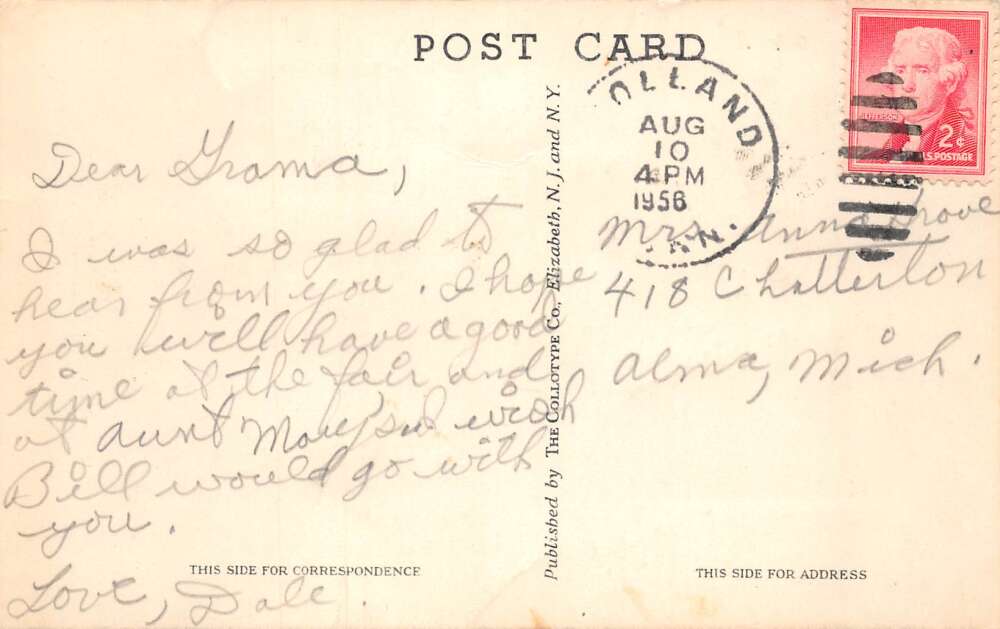 POST CARD
OLLAND
AUG
10
4 PM
1956
AN.
JEFFERSON
2¢
U.S. POSTAGE
Dear Grama,
I was so glad to
hear from you. I hope
you will have a good
time at the fair, and
at Aunt Mary's. I wish
Bill would go with
you.
Love, Dale.
THIS SIDE FOR CORRESPONDENCE
Published by THE COLLOTYPE CO., Elizabeth, N. J. and N. Y.
Mrs. Anna
418 Chatterton
Alma, Mich.
THIS SIDE FOR ADDRESS